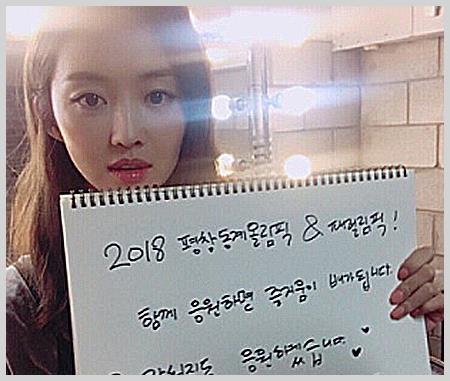 2018 평창동계올림픽 & 패럴림픽!
함께 응원하면 즐거움이 배가됩니다.
응원하겠습니다. ♥♥